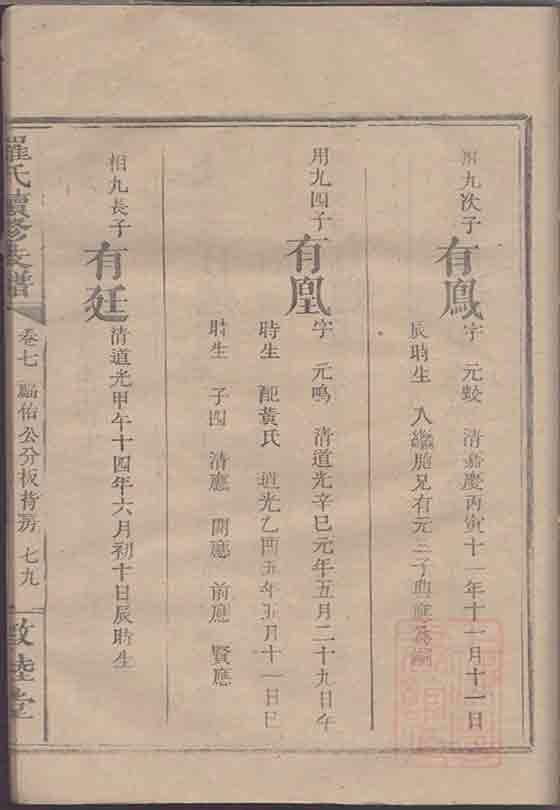 用九次子 有鳳 字 元 清嘉慶丙寅十一年十一月十一日
辰時生 入繼胞兄有元三子典應為嗣
用九四子 有凰 字 元鳴 清道光辛巳元年五月二十九日午
時生 配黃氏 道光乙酉五年五月十一日巳
時生 子四 清應 開應 前應 賢應
相九長子 有廷 清道光甲午十四年六月初十日辰時生
羅氏續修支譜 卷七 佑公分板背房 七九 敦睦堂